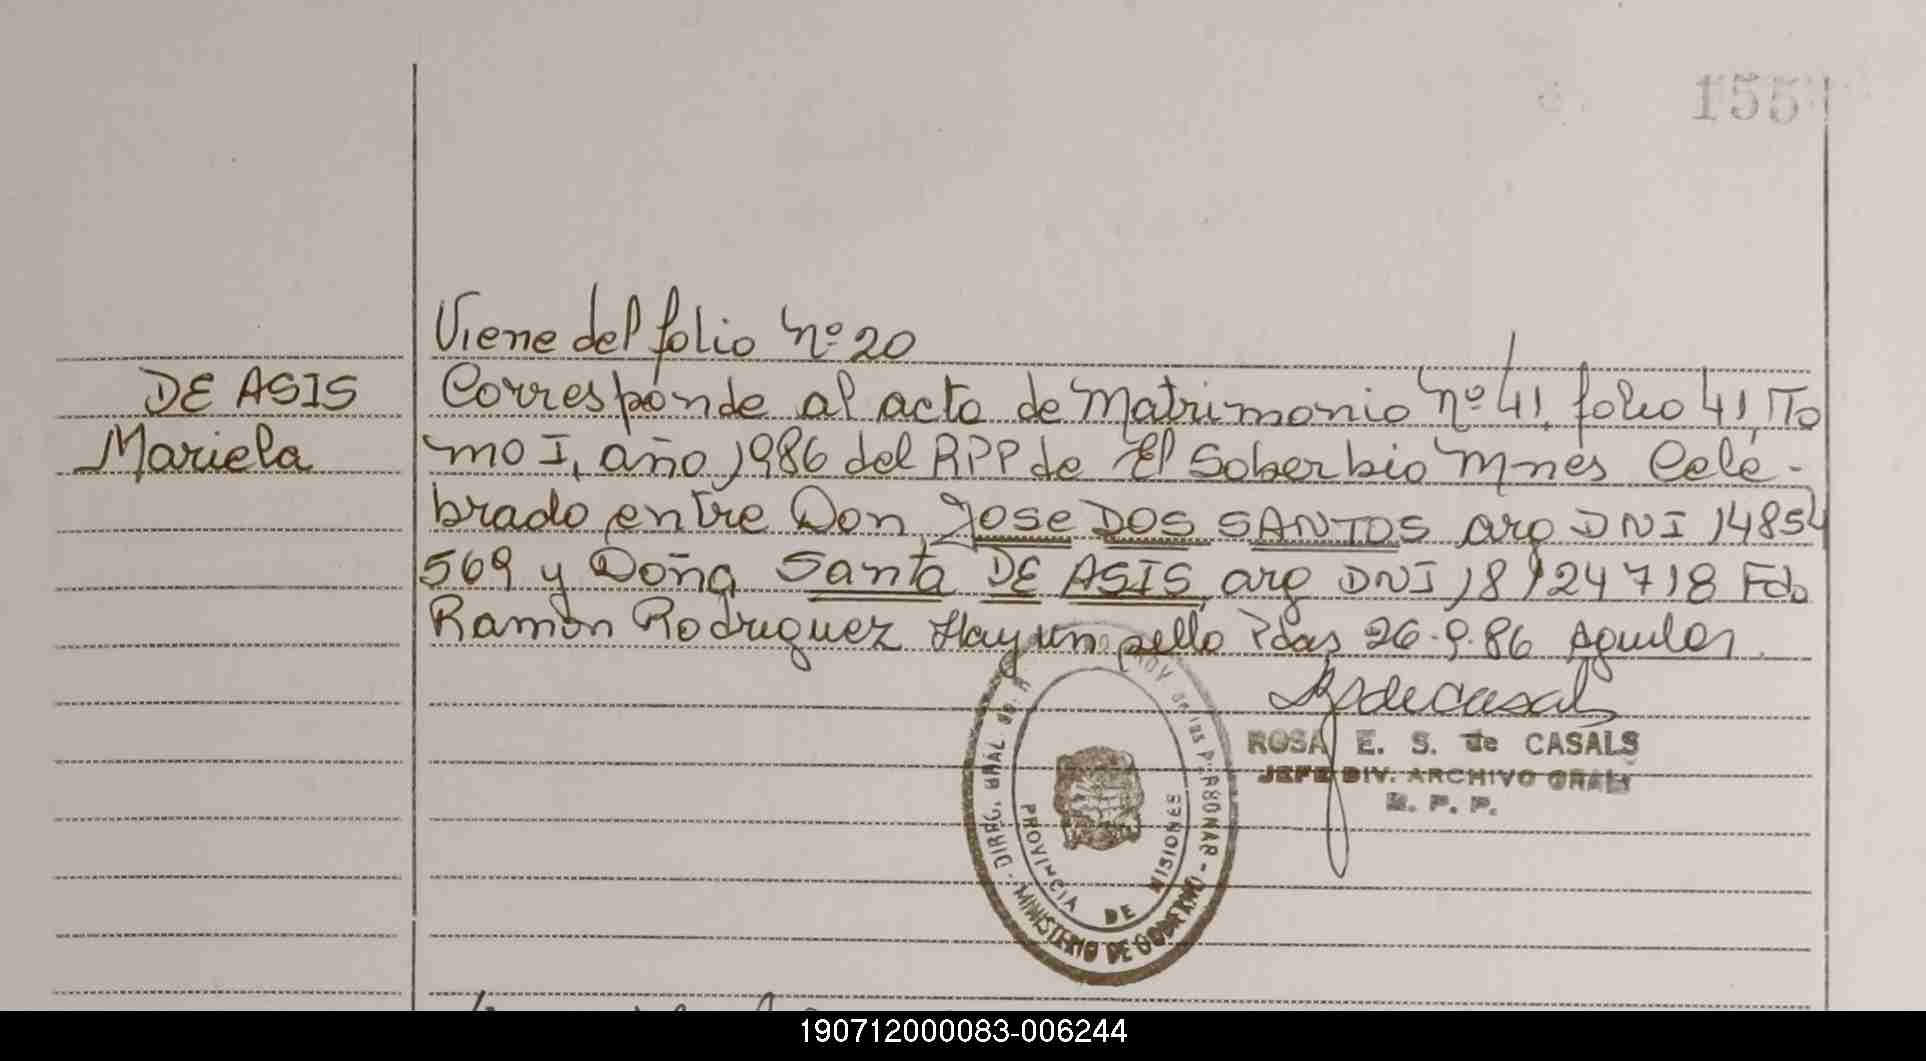 155
Viene del folio nº 20
DE ASIS
Mariela
Corresponde al acta de Matrimonio nº 41, folio 41, To
mo I, año 1986 del RPP de El Soberbio Mnes Cele-
brado entre Don Jose DOS SANTOS arg DNI 14854
569 y Doña Santa DE ASIS, arg DNI 18124718 Fdo
Ramón Rodriguez Hay un sello Pdas 26.9.86 Aguilar
Rsdecasals
ROSA E. S. de CASALS
JEFE DIV. ARCHIVO GRAL
R. P. P.
DIREC. GRAL. de las P.
MINISTERIO DE GOBIERNO
PROVINCIA DE MISIONES
190712000083-006244